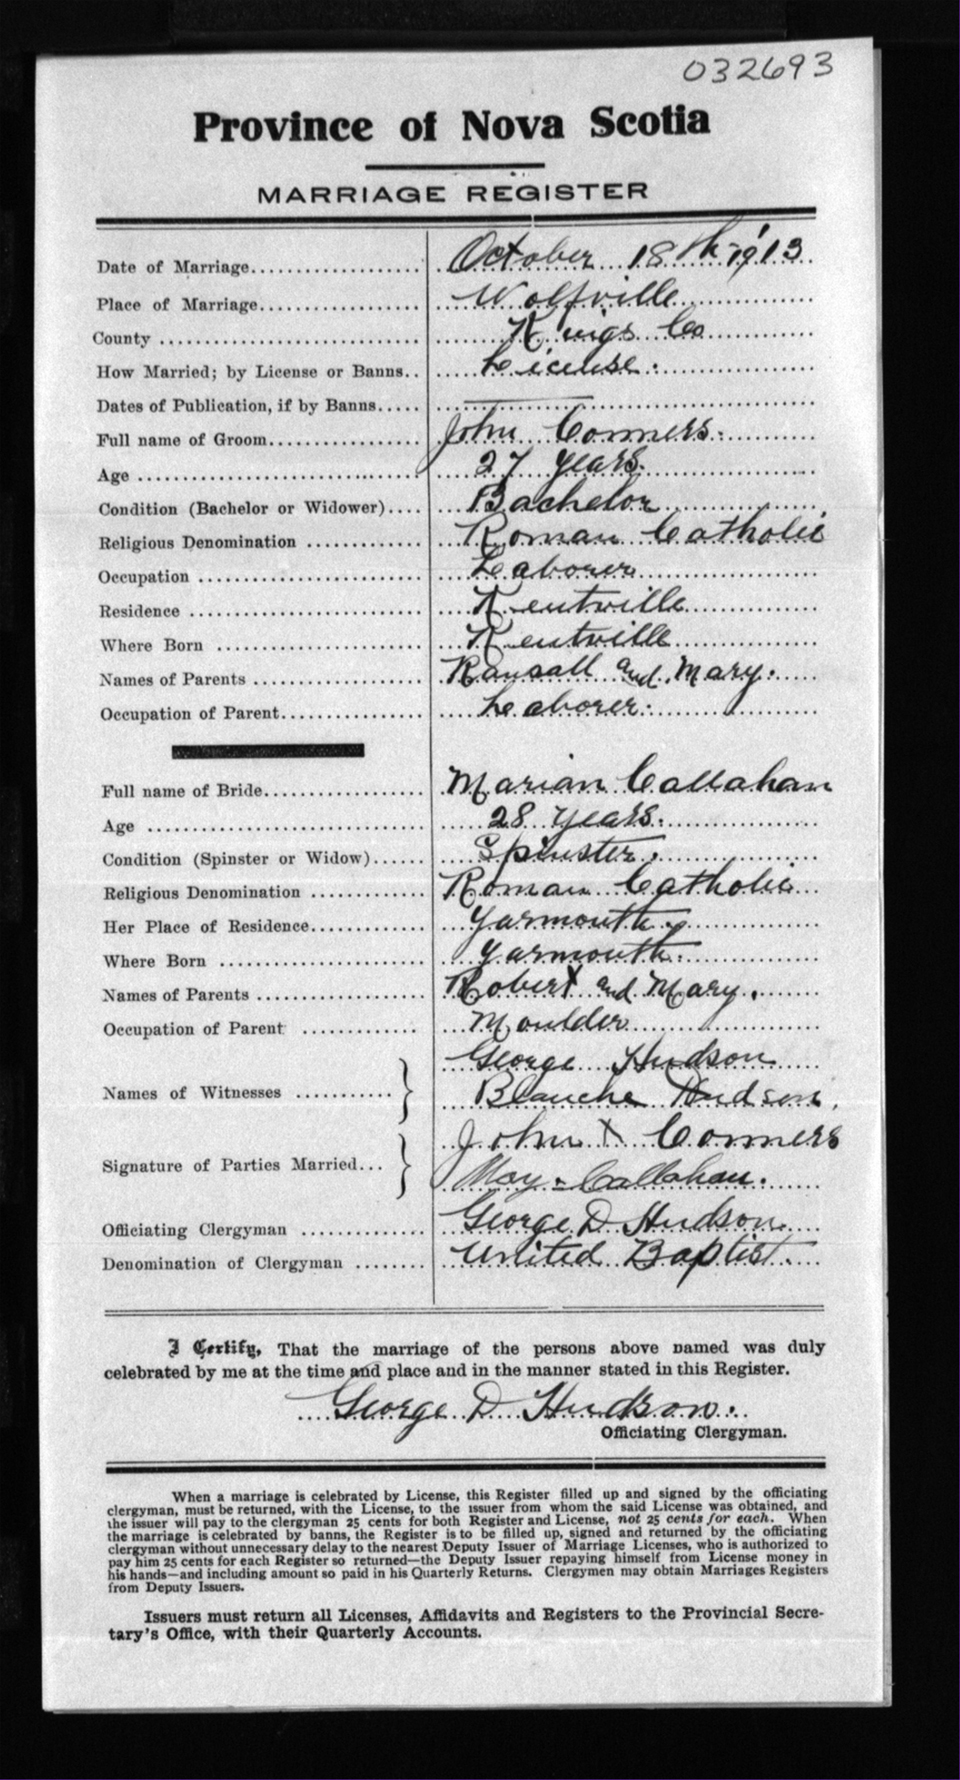 032693
Province of Nova Scotia
MARRIAGE REGISTER
Date of Marriage.................... October 18th 1913
Place of Marriage................... Wolfville
County .............................. Kings Co
How Married; by License or Banns.. License.
Dates of Publication, if by Banns.....
Full name of Groom.................. John Conners.
Age ................................. 27 years.
Condition (Bachelor or Widower).... Bachelor
Religious Denomination .............. Roman Catholic
Occupation .......................... Laborer
Residence ........................... Kentville
Where Born .......................... Kentville
Names of Parents .................... Ransall and Mary.
Occupation of Parent................. Laborer.
Full name of Bride................... Marian Callahan
Age ................................. 28 years.
Condition (Spinster or Widow)...... Spinster.
Religious Denomination .............. Roman Catholic
Her Place of Residence.............. Yarmouth.
Where Born .......................... Yarmouth.
Names of Parents .................... Robert and Mary.
Occupation of Parent ................ Moulder
Names of Witnesses ............ } George Hudson
Blanche Hudson.
Signature of Parties Married... } John X Conners
May. Callahan.
Officiating Clergyman ............... George D Hudson
Denomination of Clergyman ........ United Baptist.
I Certify, That the marriage of the persons above named was duly
celebrated by me at the time and place and in the manner stated in this Register.
George D Hudson.
Officiating Clergyman.
When a marriage is celebrated by License, this Register filled up and signed by the officiating
clergyman, must be returned, with the License, to the issuer from whom the said License was obtained, and
the issuer will pay to the clergyman 25 cents for both Register and License, not 25 cents for each. When
the marriage is celebrated by banns, the Register is to be filled up, signed and returned by the officiating
clergyman without unnecessary delay to the nearest Deputy Issuer of Marriage Licenses, who is authorized to
pay him 25 cents for each Register so returned—the Deputy Issuer repaying himself from License money in
his hands—and including amount so paid in his Quarterly Returns. Clergymen may obtain Marriages Registers
from Deputy Issuers.
Issuers must return all Licenses, Affidavits and Registers to the Provincial Secre-
tary's Office, with their Quarterly Accounts.